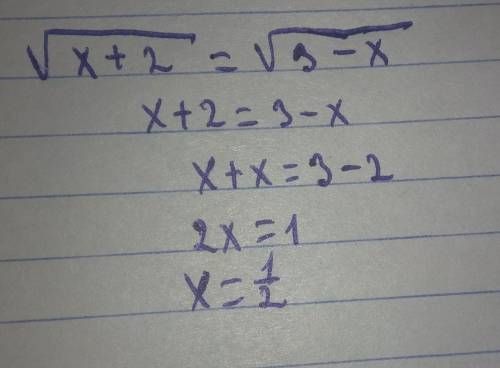 √(x+2) = √(3-x)
x+2=3-x
x+x=3-2
2x=1
x=1/2